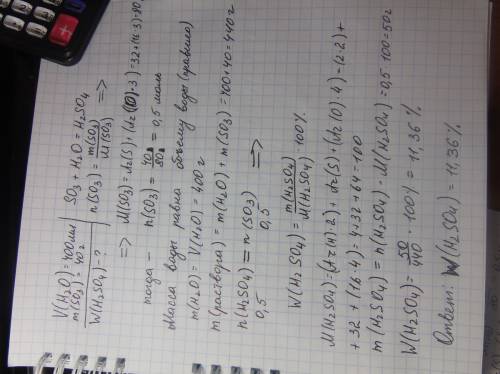 V(H2O)=400мл | SO3 + H2O = H2SO4
m(SO3)=40г | n(SO3) = m(SO3)/M(SO3) =>
W(H2SO4)-?
=> M(SO3) = Ar(S)+(Ar(O)·3)=32+(16·3)=80
тогда – n(SO3) = 40г/80г = 0,5 моль
Масса воды равна объему воды (правило)
m(H2O) = V(H2O) = 400г
m(раствора) = m(H2O) + m(SO3) = 400+40 = 440г
n(H2SO4) = n(SO3) =>
0,5 0,5
W(H2SO4) = m(H2SO4)/M(H2SO4) · 100%
M(H2SO4)=(Ar(H)·2)+Ar(S)+(Ar(O)·4)=(2·2)+
+32+(16·4)=4+32+64=100
m(H2SO4) = n(H2SO4) · M(H2SO4) = 0,5·100=50г
W(H2SO4) = 50/440 · 100% = 11,36%
Ответ: W(H2SO4) = 11,36%